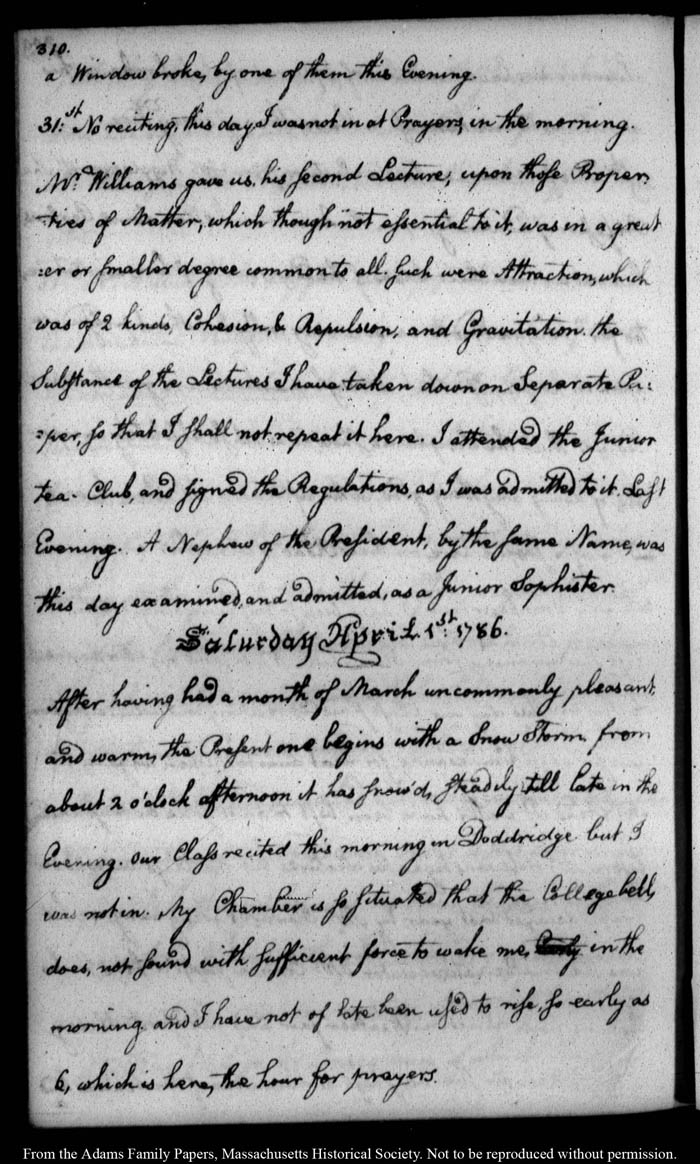 310.
a Window broke, by one of them this Evening.
31:st No reciting, this day I was not in at Prayers, in the morning.
Mr. Williams gave us, his second Lecture, upon those Proper-
-ties of Matter, which though not essential to it, was in a great
:er or smaller degree common to all. Such were Attraction, which
was of 2 kinds, Cohesion, & Repulsion, and Gravitation. the
Substance of the Lectures I have taken down on Separate Pa:
:per, so that I shall not repeat it here. I attended the Junior
tea-Club, and signed the Regulations, as I was admitted to it, Last
Evening. A Nephew of the President, by the same Name, was
this day examined, and admitted, as a Junior Sophister.
Saturday April 1st: 1786.
After having had a month of March uncommonly pleasant,
and warm, the Present one begins with a Snow Storm. from
about 2 o'clock afternoon it has snow'd, steadily till late in the
Evening. Our Class recited this morning in Doddridge but I
was not in. My Chamber is so situated that the College bell,
does, not sound with sufficient force to wake me, in the
morning and I have not of late been used to rise, so early as
6, which is here, the hour for prayers.
From the Adams Family Papers, Massachusetts Historical Society. Not to be reproduced without permission.